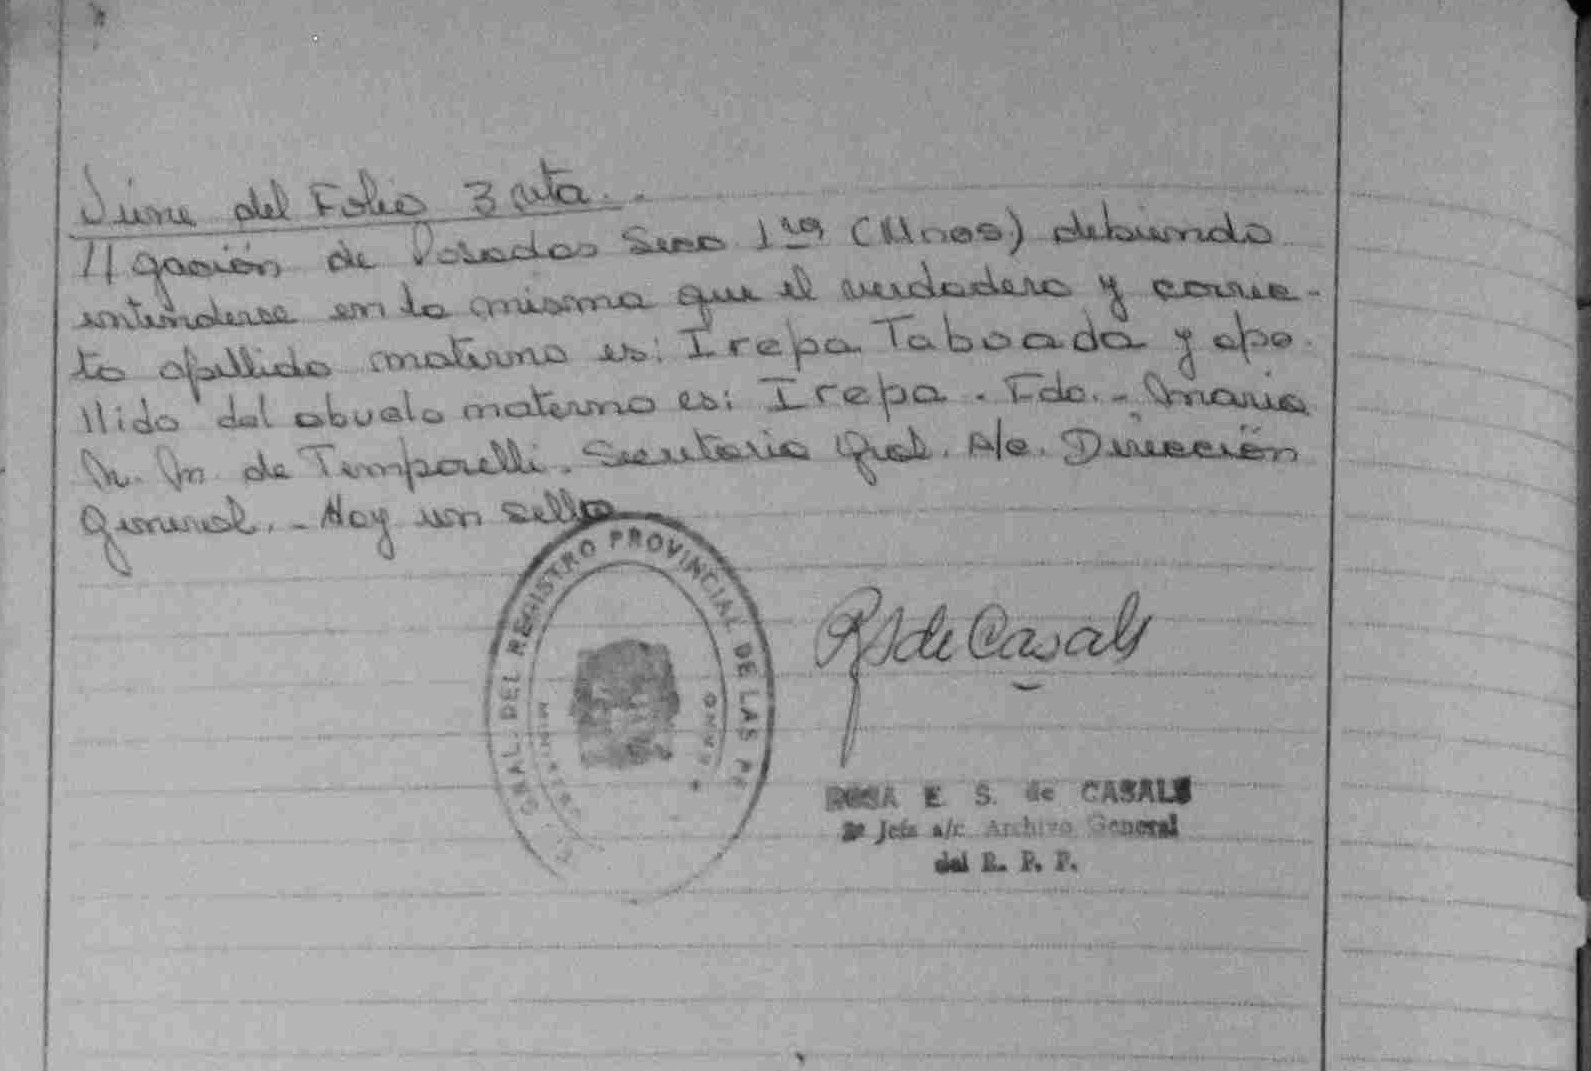 Viene del Folio 3 vta..
//gación de Posadas Secc 1ra (Mnes.) debiendo
entenderse en la misma que el verdadero y correc-
to apellido materno es: Irepa Taboada y ape-
llido del abuelo materno es: Irepa. Fdo.- Maria
M. M. de Temporelli. Secretaria Gral. A/c. Dirección
General.- Hay un sello
GRAL. DEL REGISTRO PROVINCIAL DE LAS PE
R S de Casals
ROSA E. S. de CASALS
2º Jefe a/c. Archivo General
del R. P. P.